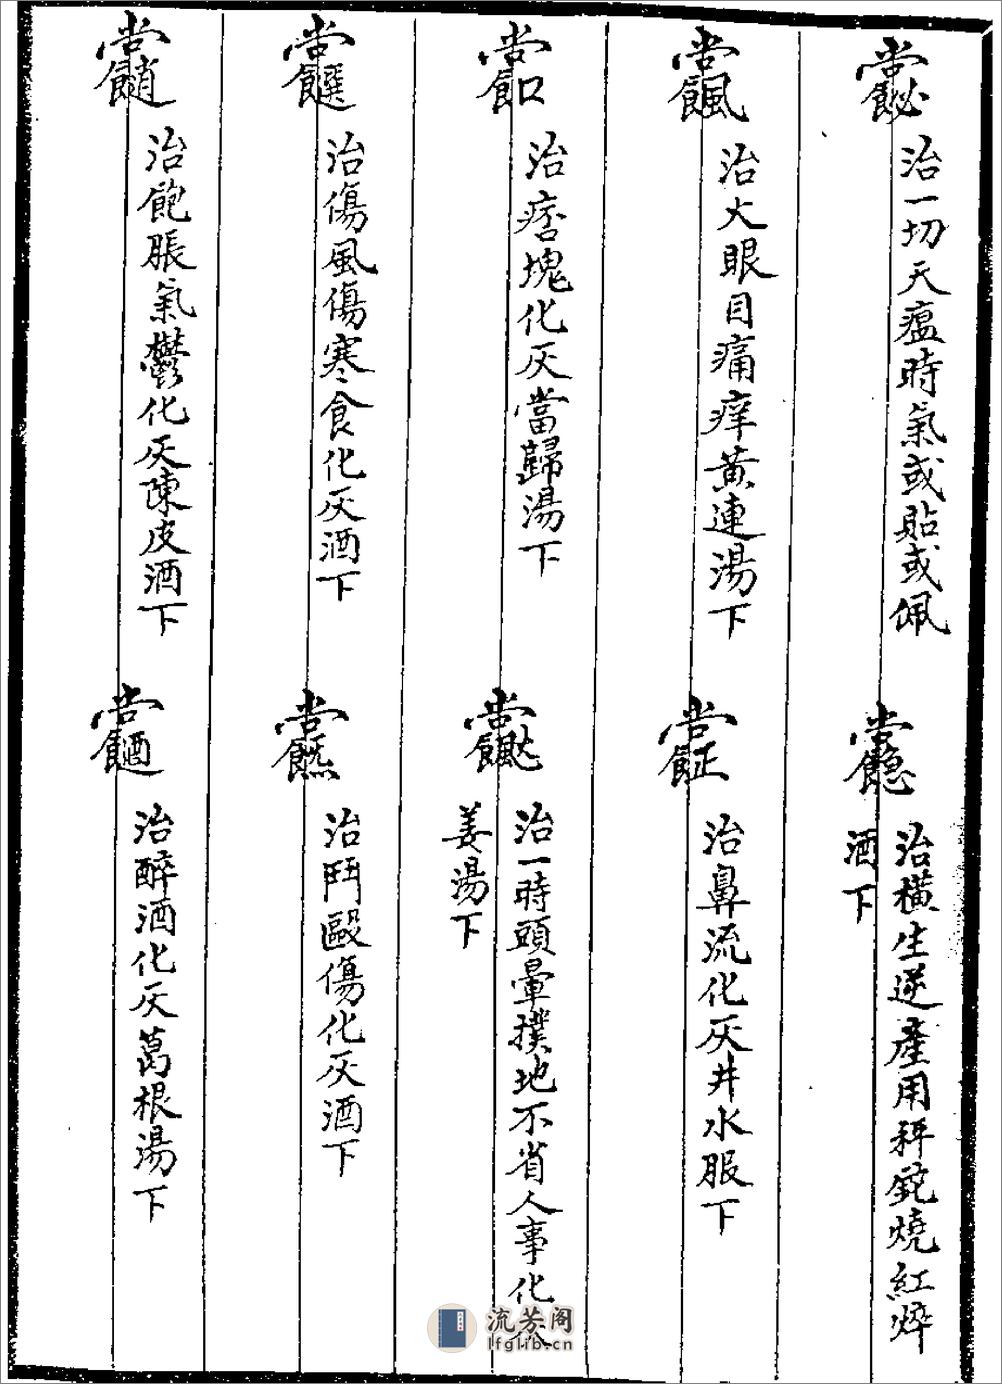 治一切天瘟時氣或貼或佩
治橫生逆產用秤鉈燒紅焠
酒下
治火眼目痛痒黃連湯下
治鼻流化灰井水服下
治痞塊化灰當歸湯下
治一時頭暈撲地不省人事化
姜湯下
治傷風傷寒食化灰酒下
治鬥毆傷化灰酒下
治飽脹氣鬱化灰陳皮酒下
治醉酒化灰葛根湯下
流芳阁
lfglib.cn